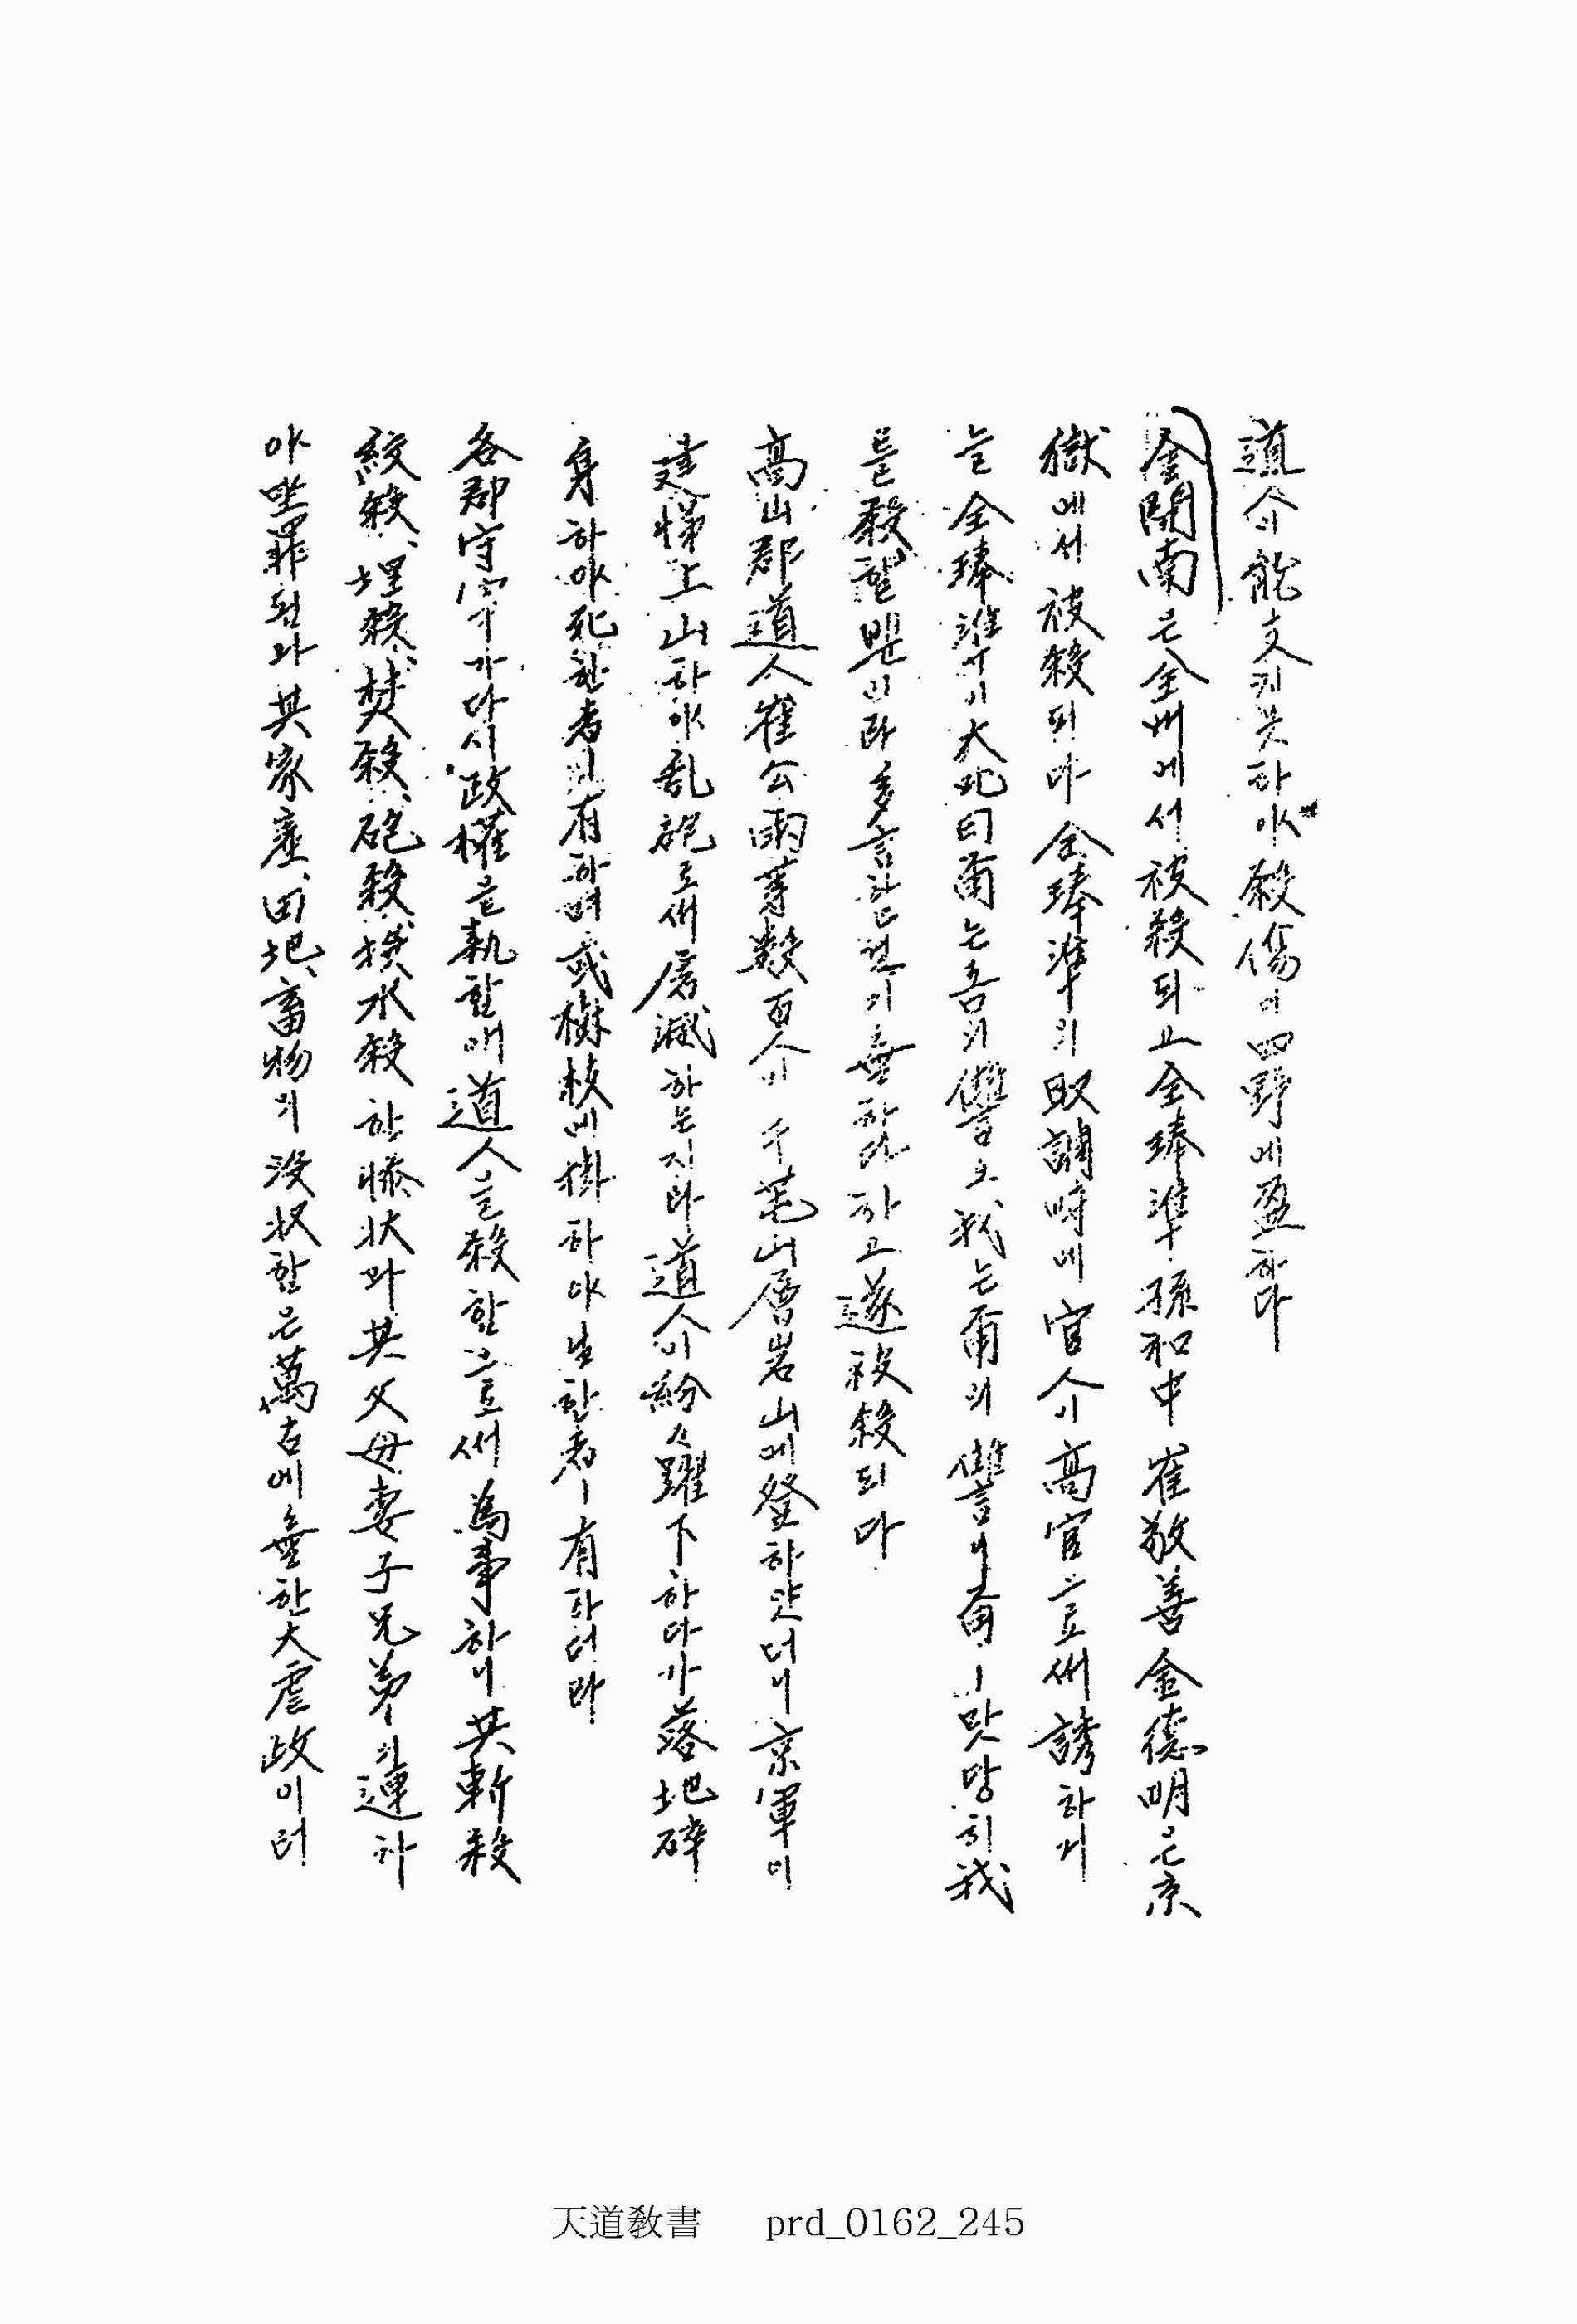 道人이能支키못하야殺傷이四野에盈하다
金開南은全州에서被殺되고全琫準孫和中崔敬善金德明은京
獄에서被殺되다全琫準의取調時에官人이高官으로써誘하거
늘全琫準이大叱曰爾는吾의讐오我는爾의讐이니爾ㅣ맛당히我
를殺할뿐이라多言할것이無하다하고遂被殺되다
高山郡道人崔公雨等數百人이千芚山層岩山에登하얏더니京軍이
建梯上山하야乱砲로써屠滅하는지라道人이紛々躍下하다가落地碎
身하야死한者ㅣ有하며或樹枝에掛하야生한者ㅣ有하더라
各郡守宰가다시政權을執할애道人을殺함으로써爲事하니其斬殺
絞殺、埋殺、焚殺、砲殺、水殺한慘狀과其父母妻子兄弟의連하
야坐罪됨과其家産、田地、畜物의沒收함은萬古에無한大虐政이러
天道敎書 prd_0162_245